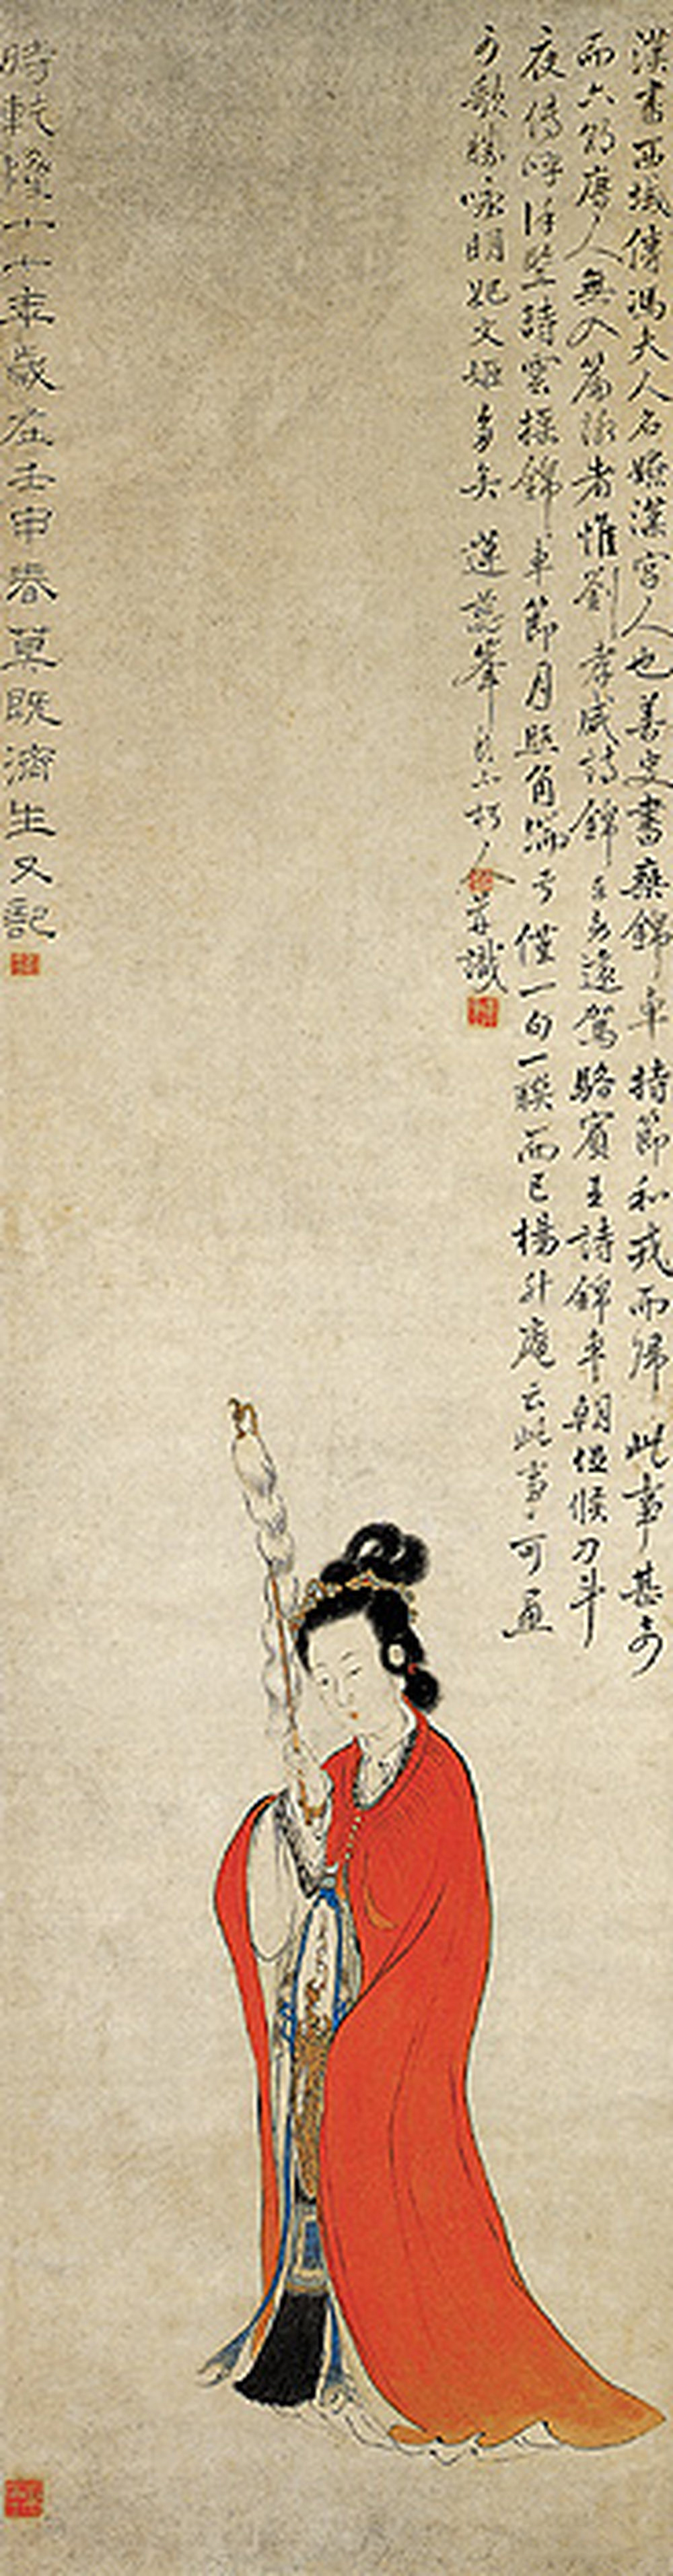 漢書西域傳馮夫人名嫽漢宮人也善史書乘錦車持節和戎而歸此事甚奇
而六朝唐人無入篇詠者惟劉孝威詩錦車勞遠駕駱賓王詩錦車朝促候刁斗
夜傳呼徐堅詩雲搖錦車節月照角端弓僅一句一聯而已楊升庵云此事可畫
可歌勝咏明妃文姬多矣 蓮蕊峯頭不朽人并識
時乾隆十七年歲在壬申春莫既濟生又記